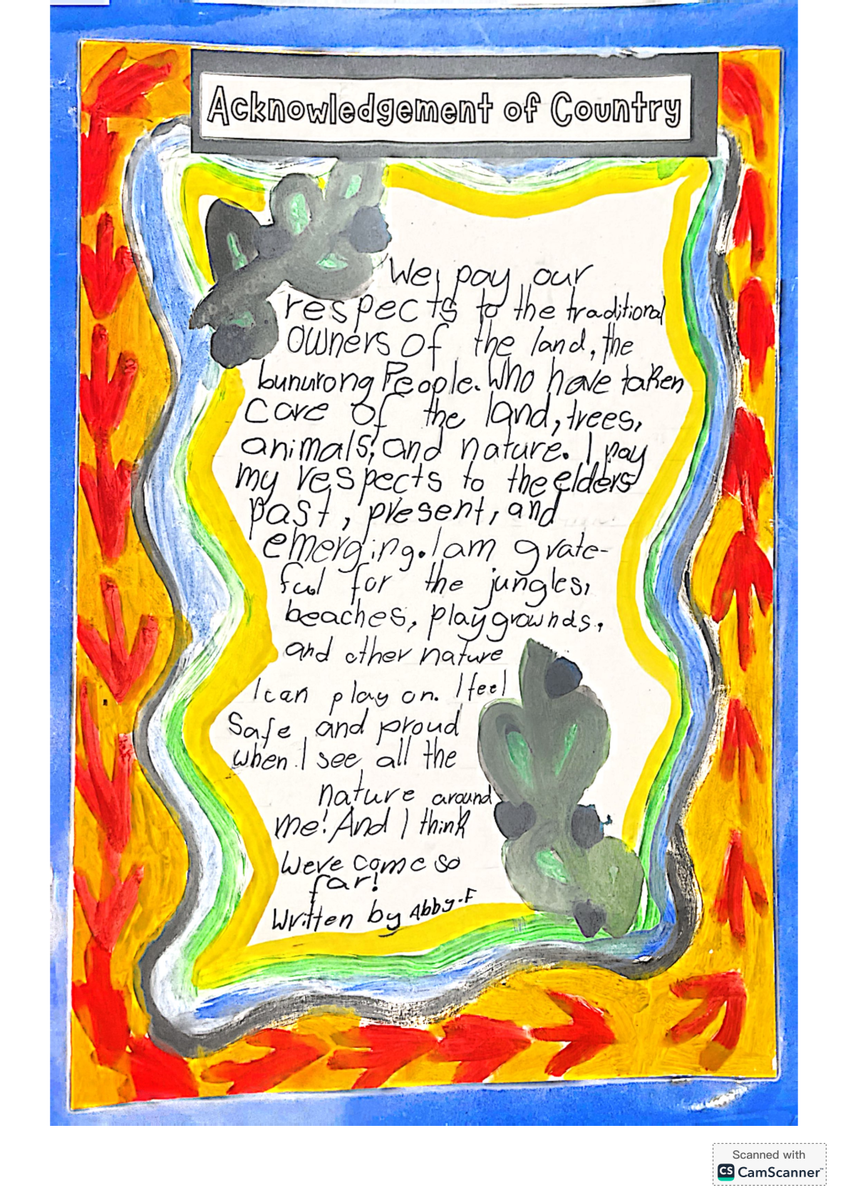 Acknowledgement of Country
We pay our
respects to the traditional
owners of the land, the
bunurong People. Who have taken
care of the land, trees,
animals, and nature. I pay
my respects to the elders
past, present, and
emerging. I am grate-
ful for the jungles,
beaches, playgrounds,
and other nature
I can play on. I feel
Safe and proud
when I see all the
nature around
me! And I think
Weve come so
far!
Written by Abby-F
Scanned with
CS CamScanner